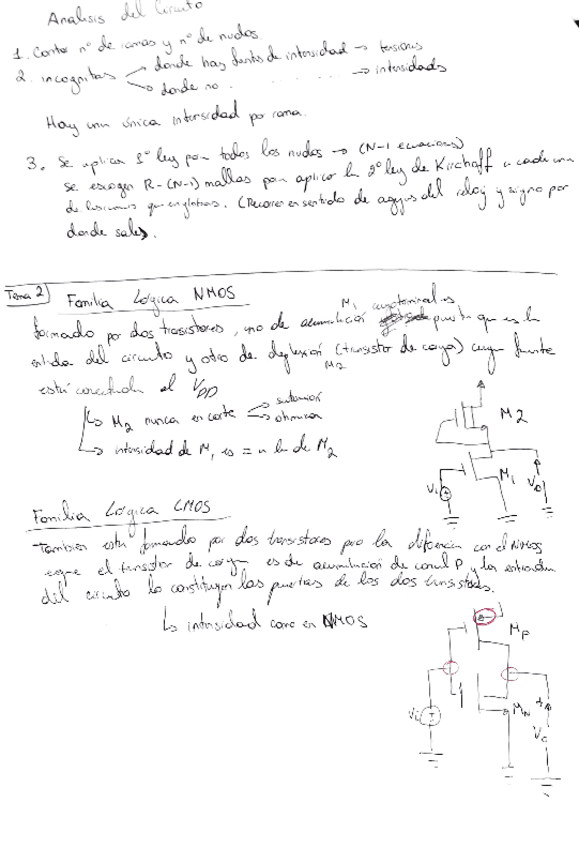 Analisis del Circuito
1. Contar nº de ramas y nº de nudos.
2. incognitas → donde hay fuentes de intensidad → tensiones
→ donde no . . . . . . . → intensidades
Hay una única intensidad por rama.
3. Se aplica 1ª ley para todos los nudos → (N-1 ecuaciones)
Se escogen R-(N-1) mallas para aplicar la 2ª ley de Kirchoff a cada una
de las que engloban. (Recorrer en sentido de agujas del reloj y signo por
donde sale).
Tema 2 Familia Lógica NMOS
formado por dos transistores, uno de acumulación M1 cuyo terminal es puerta que es la
entrada del circuito y otro de deplexión (transistor de carga) cuya fuente
M2
está conectada al VDD
↳ M2 nunca en corte → saturación
→ ohmica
↳ intensidad de M1 es = a la de M2
M2
M1
Vi
Vo
Familia Lógica CMOS
También está formado por dos transistores pero la diferencia con el NMOS
es que el transistor de carga es de acumulación de canal P y la entrada
del circuito la constituyen las puertas de los dos transistores.
↳ intensidad como en NMOS
Mp
MN
Vi
Vo